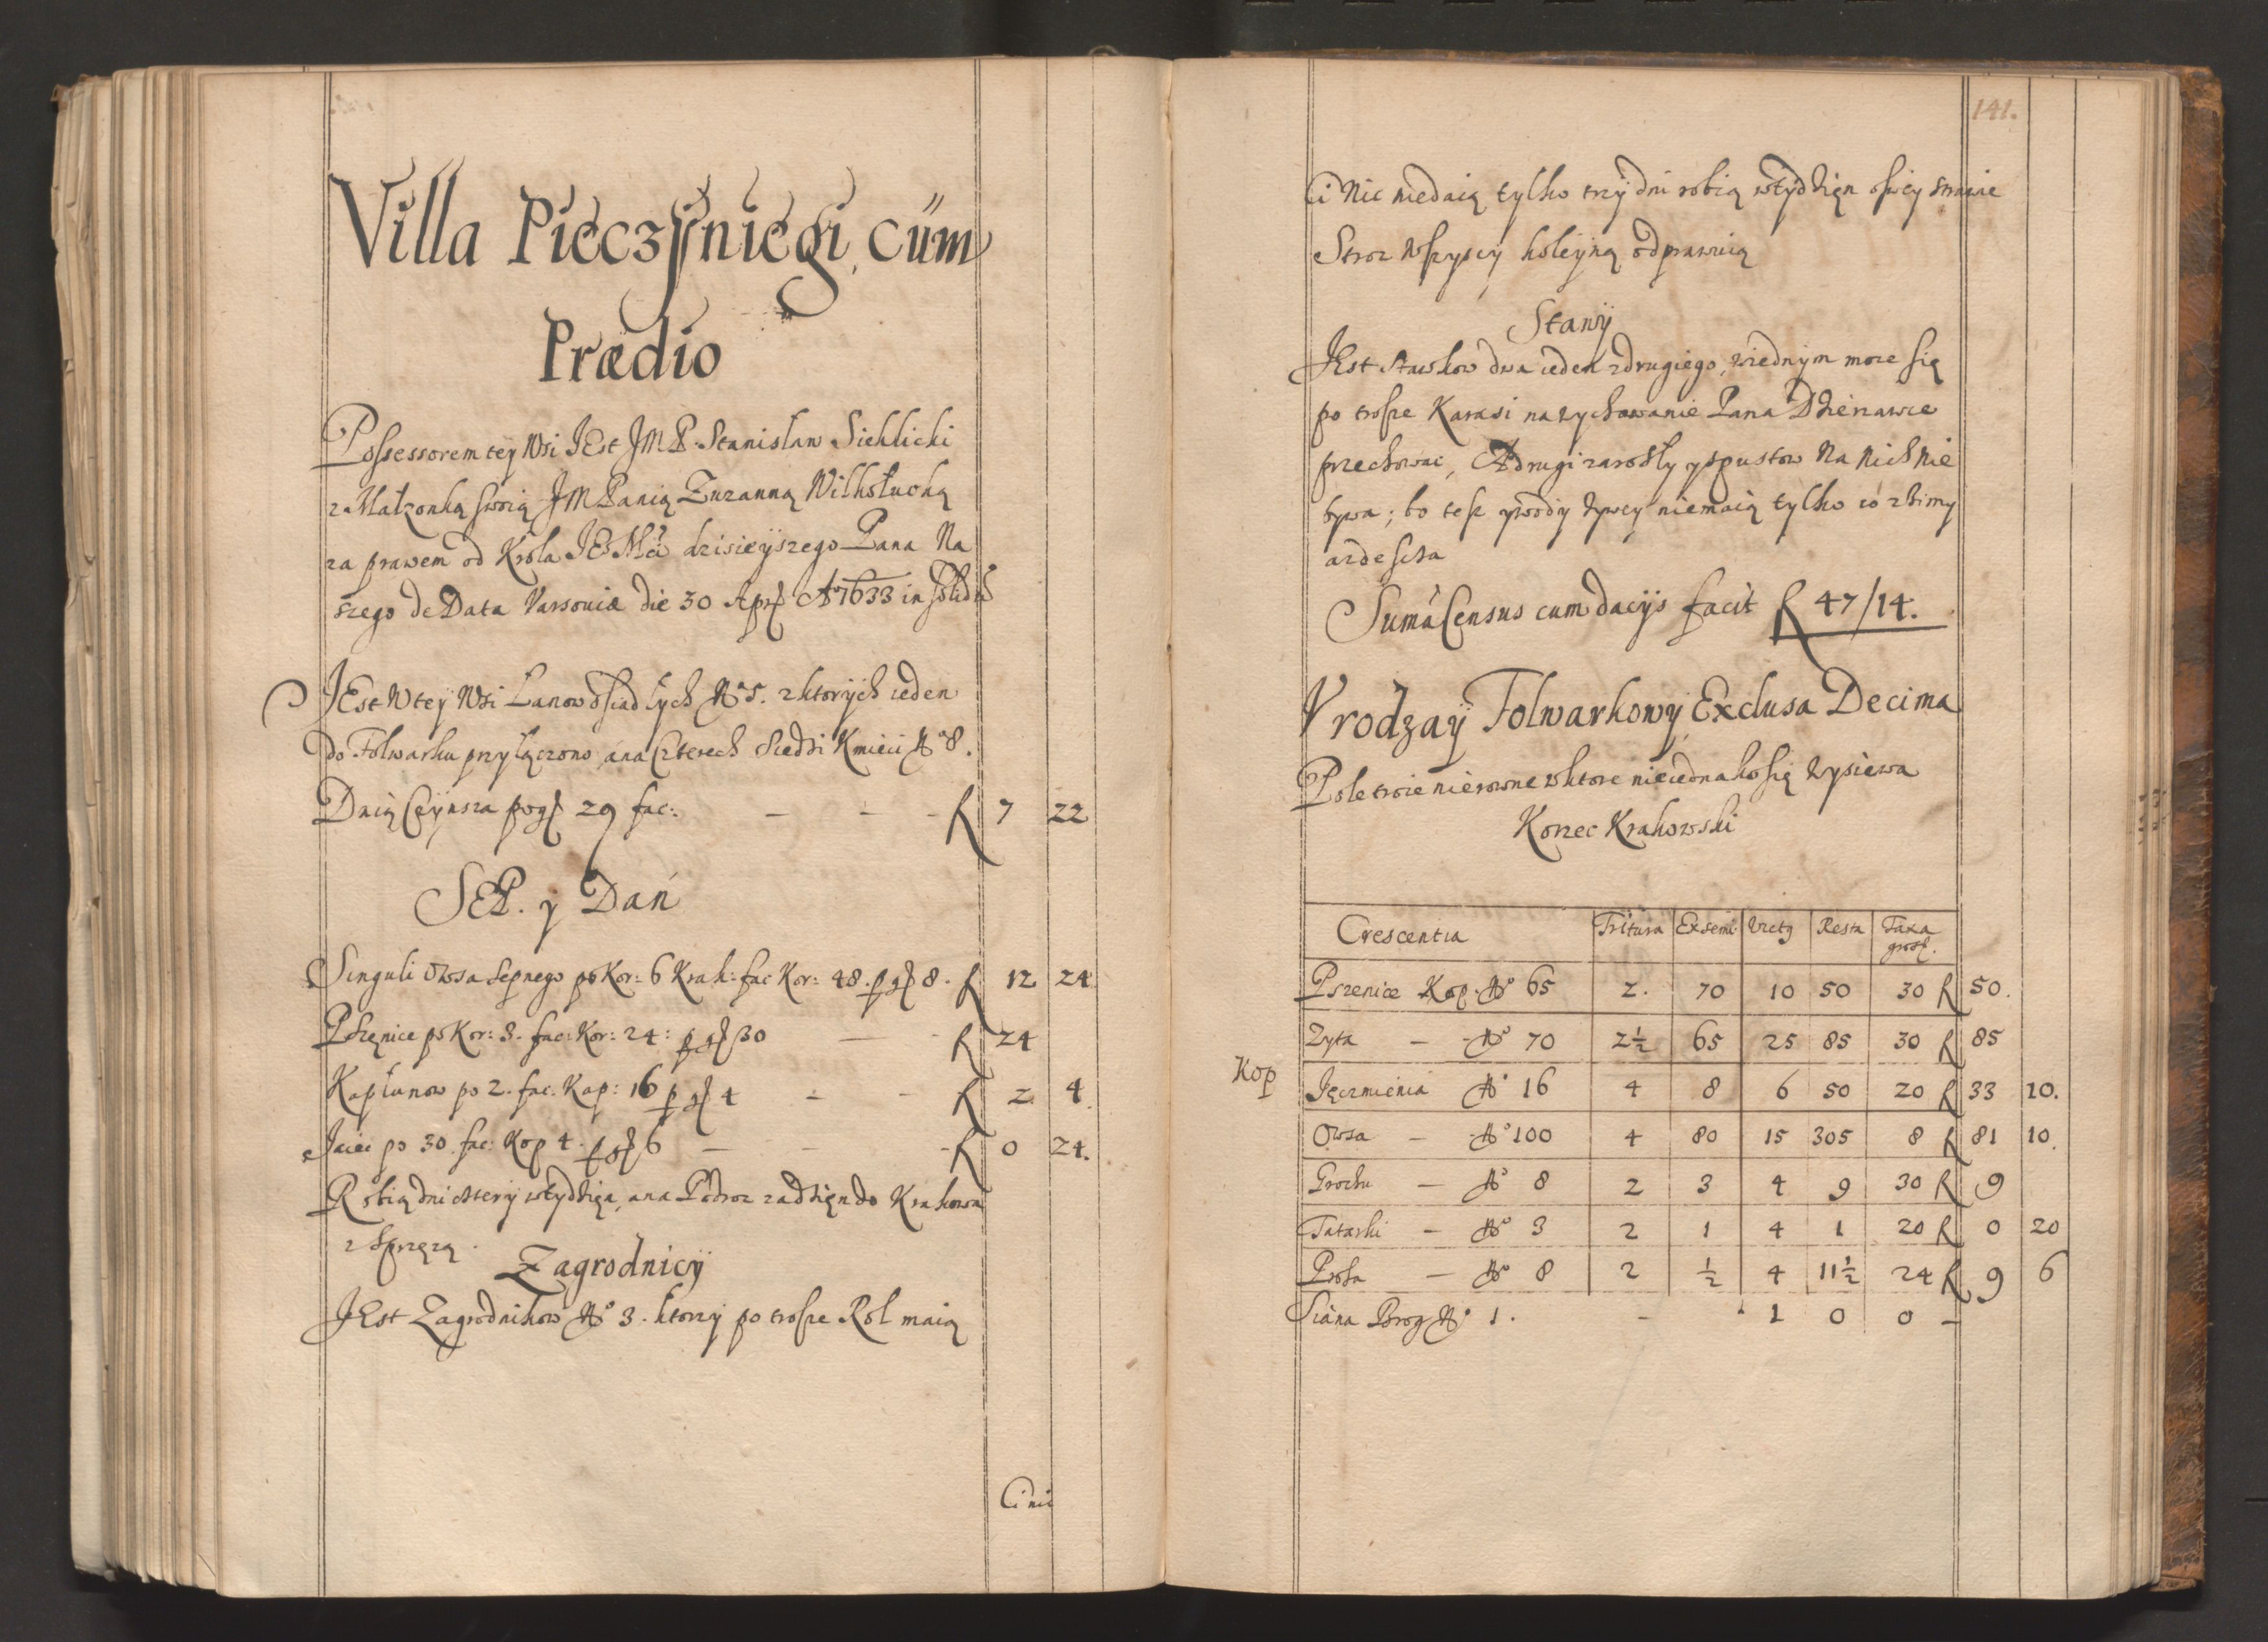 Villa Pieczÿniegi, cüm
Prædio
Possessorem tey Wsi JEst JMP. Stanislaw Siehlicki
z Małzonką swoią JMPanią Zuzanną Wilkołucką
za prawem od Krola JEoMci dzisieyszego Pana Na
szego de Data Varsouiæ die 30 Apr: Aº 1633 in solidū
JEst W tey Wsi Łanow osiadłych Nº 5. z ktorych ieden
do Folwarku przyłączono, ana Czterech Siedzi Kmieci Nº 8.
Daią Czynsza po g 29 fac: — — — f 7 22
SEP. y Dań
Singuli Owsa Sepnego po Kor: 6 Krak: fac Kor: 48. p g 8. f 12 24
Pszenice po Kor: 3. fac: Kor: 24: p g 30 — — f 24
Kapłunow po 2. fac: Kap: 16 p g 4 — — f 2 4
Jaiec po 30. fac: Kop 4. p g 6 — — — f 0 24.
Robią dni cztery wtydzień, ana Podroz zadzień do Krakowa
z Sprzęzą.
Zagrodnicÿ
JEst Zagrodnikow Nº 3. ktorzy po trosze Rol maią
Ci nic
141.
Ci Nic niedaią tylko trzÿ dni robią wtydzień oswey strawie
Stroz wszyscy koleyną odprawuią
Stawÿ
JEst Stawkow dwa ieden zdrugiego, wiednÿm moze się
po trosze Karasi na wychowanie Pana Dzierzawce
przechowac, A drugi zarosły y spustow Na nich nie
bywa; bo tesz y wody zywey niemaią tylko co zzimy
azdeszcza
Suma Census cum dacijs facit f 47/14.
Vrodzaÿ Folwarkowy Exclusa Decima
Pole troie nierowne w ktore nieiednako się wysiewa
Korzec Krakowski
Crescentia Tritura Exsemi: Victꝯ Resta Taxa
gross.
Pszenice Kop. Nº 65 2. 70 10 50 30 f 50.
Zyta — Nº 70 2½ 65 25 85 30 f 85
Kop
Jęczmienia Nº 16 4 8 6 50 20 f 33 10.
Owsa — Nº 100 4 80 15 305 8 f 81 10.
Grochu — Nº 8 2 3 4 9 30 f 9
Tatarki — Nº 3 2 1 4 1 20 f 0 20
Prosa — Nº 8 2 ½ 4 11½ 24 f 9 6
Siana Brog Nº 1. — 1 0 0 —